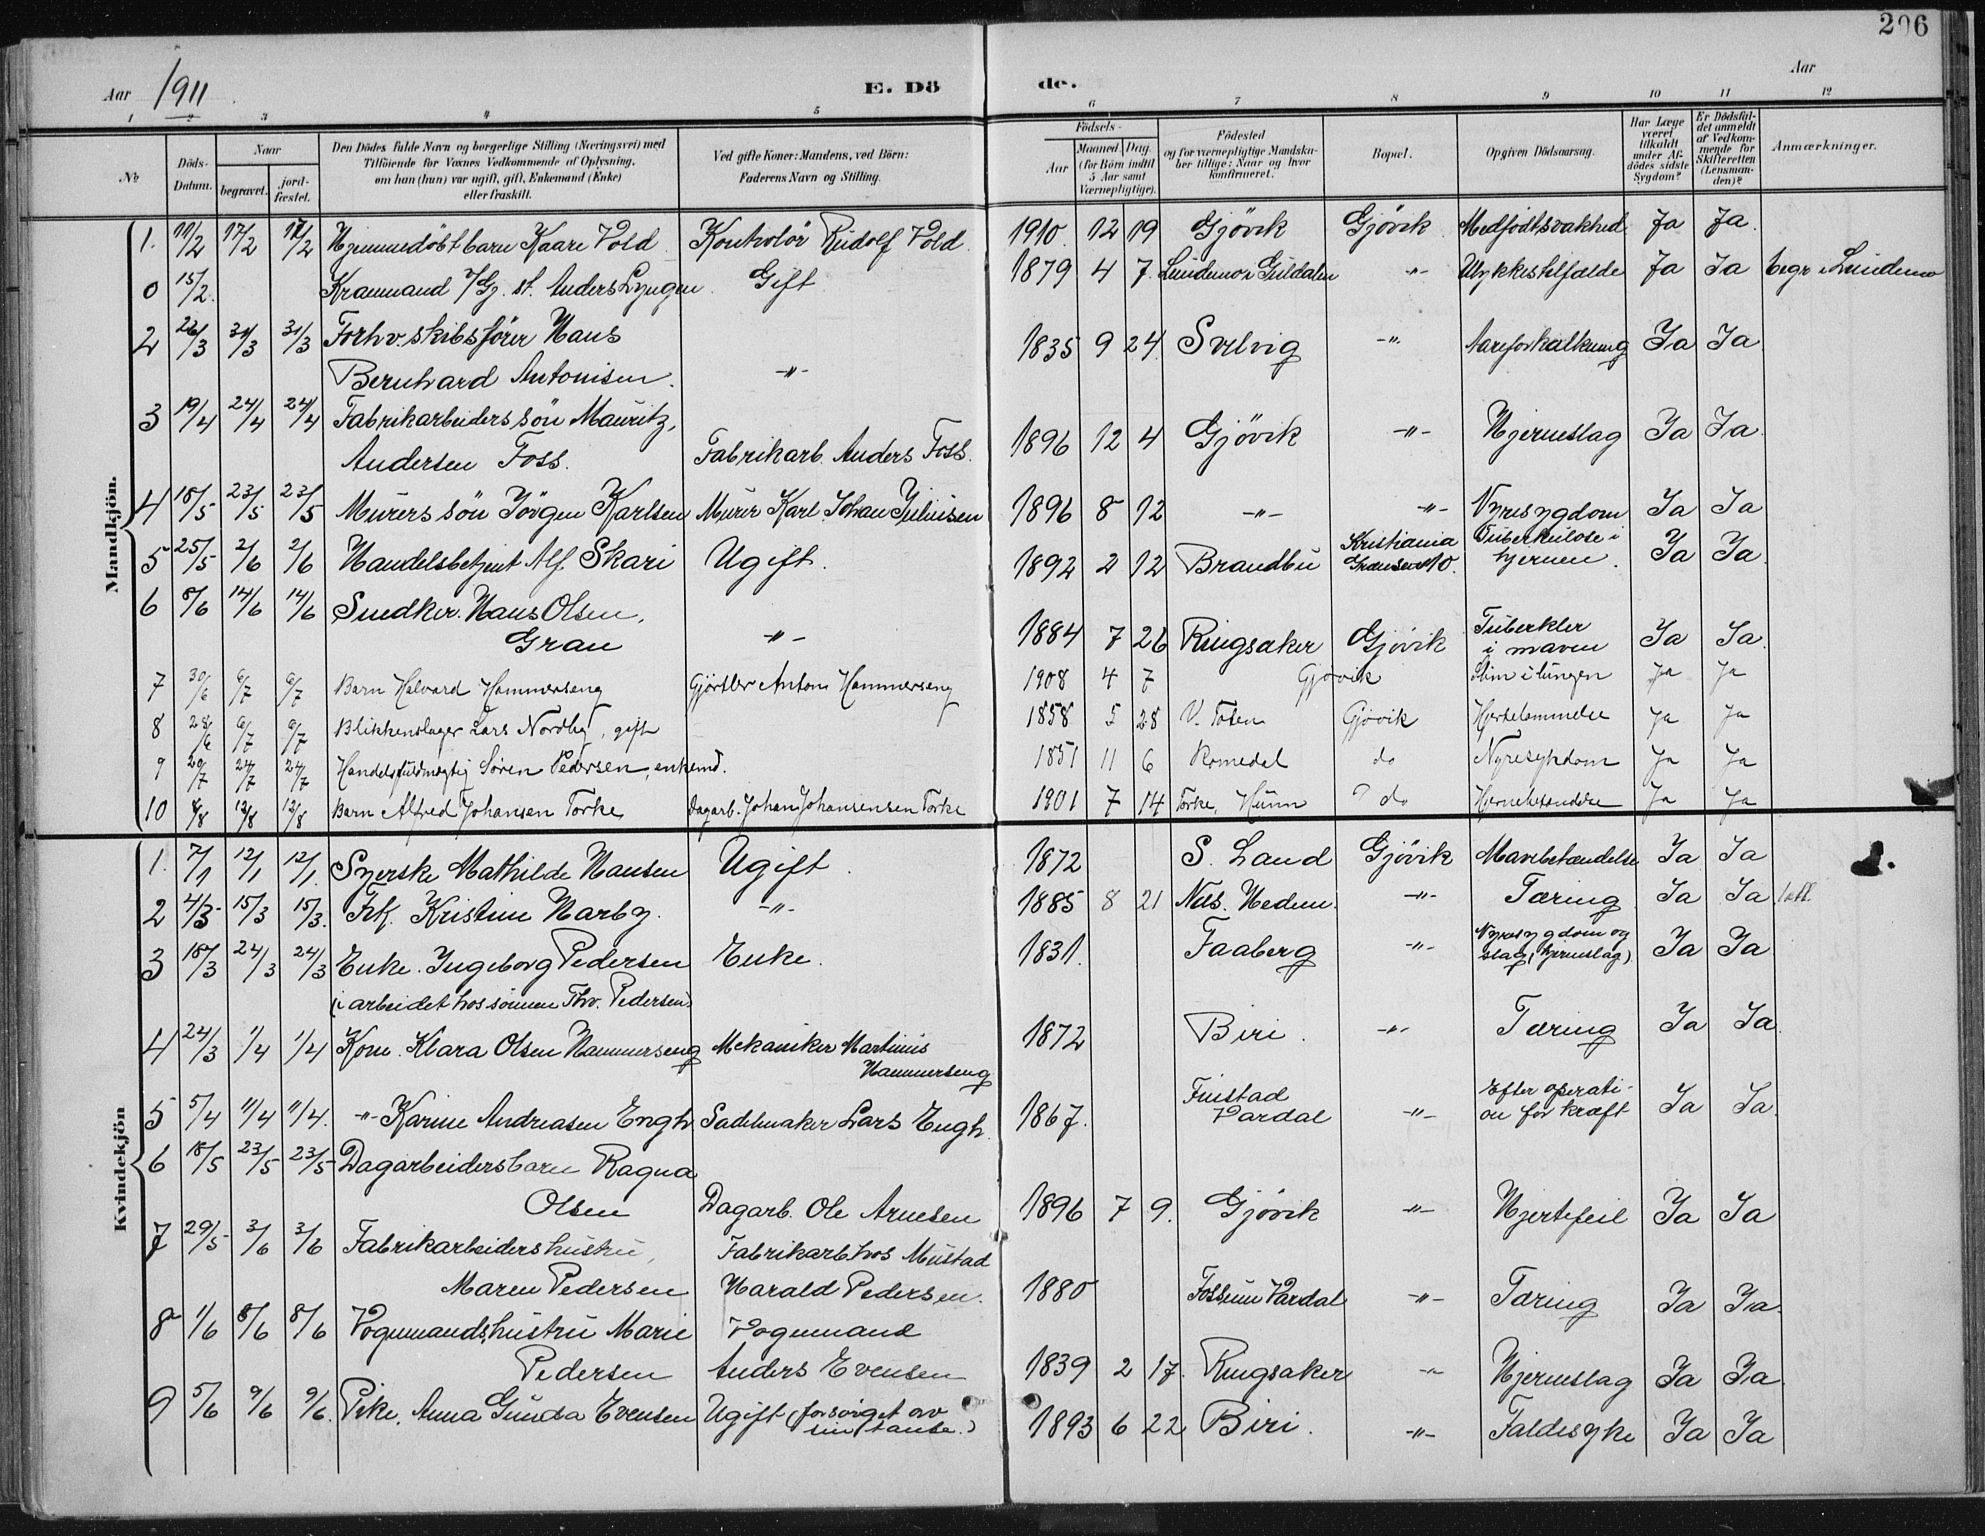 206
Aar 1911 E. Dö de. Aar
1 2 3 4 5 6 7 8 9 10 11 12
No Döds-Datum. Naar begravet. jord-fæstet. Den Dödes fulde Navn og borgerlige Stilling (Næringsvei) med Tilföiende for Voxnes Vedkommende af Oplysning, om han (hun) var ugift, gift, Enkemand (Enke) eller fraskilt. Ved gifte Koner: Mandens, ved Börn: Faderens Navn og Stilling. Födsels- Aar Maaned Dag. (for Börn indtil 5 Aar samt Værnepligtige). Födested og for værnepligtige Mandskaber tillige: Naar og hvor konfirmeret. Bopæl. Opgiven Dödsaarsag. Har Læge været tilkaldt under Afdödes sidste Sygdom? Er Dödsfaldet anmeldt af Vedkommende for Skifteretten (Lensmanden)? Anmærkninger.
Mandkjön.
1. 11/2 17/2 17/2 Hjemmedöbt barn Kaare Vold Kontrolör Rudolf Vold. 1910. 12 19 Gjövik Gjövik Medfödt svakhed Ja Ja.
0 15/2. Kranmand Gj. st. Anders Lyngen. Gift 1879 4 7. Lundemo i Guldalen -"- Ulykkestilfælde Ja Ja begr. i Lundemo
2 23/3 31/3 31/3 Forhv. skibsförer Hans
Bernhard Antonisen. -"- 1835 9 24. Svelvig -"- Aareforkalkning Ja Ja
3 19/4 24/4 24/4 Fabrikarbeiders sön Mauritz,
Andersen Foss. Fabrikarb. Anders Foss. 1896 12 4 Gjövik -"- Hjerneslag Ja Ja.
4 18/5 23/5 23/5 Murers sön Jörgen Karlsen Murer Karl Johan Juliusen 1896 8 12 -"- -"- Nyresygdom Ja Ja
5 25/5 2/6 2/6 Handelsbetjent Alf Skari Ugift. 1892 2 12 Brandbu Kristiania Grænsen 10. Tuberkulose i hjernen. Ja Ja.
6 8/6 14/6 14/6 Snedker Hans Olsen,
Gran -"- 1884 7 26 Ringsaker Gjövik Tuberkler i maven Ja Ja.
7 30/6 6/7 6/7 Barn Halvard Hammerseng Gjörtler Anton Hammerseng 1908 4 7 Gjövik Slim i lungen Ja Ja
8 28/6 6/7 6/7 Blikkenslager Lars Nordby, gift 1858 5 28 V. Toten Gjövik Hjertelammelse Ja Ja
9 20/7 24/7 24/7 Handelsfuldmægtig Sören Pedersen, enkemd. 1851 11 6 Romedal do Nyresygdom Ja Ja
10 8/8 12/8 12/8 Barn Alfred Johansen Torke Dagarb. Johan Johansensen Torke 1901 7 14 Torke, Hunn do Hjernebetændelse Ja Ja
Kvindekjön
1. 7/1 12/1 12/1. Syerske Mathilde Hansen Ugift. 1872 S. Land Gjövik Mavebetændelse Ja Ja
2 4/3 15/3 15/3. Frk. Kristine Narby. -"- 1885 8 21 Næs. Hedem. -"- Tæring Ja Ja
3 18/3 24/3 24/3 Enke. Ingeborg Pedersen Enke. 1831. Faaberg -"- Nyresygdom og slag (hjerneslag) Ja Ja
(i arbeidet hos sönnen Thv. Pedersen)
4 24/3 1/4 1/4 Kone. Klara Olsen Hammerseng Mekaniker Martinius
Hammerseng 1872 Biri. -"- Tæring Ja Ja
5 5/4 11/4 11/4. -"- Karine Andreasen Engh Sadelmaker Lars Engh. 1867. Finstad Vardal -"- Efter operati- on for kræft Ja Ja.
6 18/5 23/5 23/5 Dagarbeidersbarn Ragna
Olsen Dagarb. Ole Arnesen 1896 7 9. Gjövik -"- Hjertefeil Ja Ja
7 29/5 3/6 3/6 Fabrikarbeiders hustru, Fabrikarb. hos Mustad
Maren Pedersen Harald Pedersen. 1880 Fossum Vardal -"- Tæring Ja Ja.
8 1/6 8/6 8/6 Vognmands hustru Marie Vognmand
Pedersen Anders Evensen 1839 2 17. Ringsaker -"- Hjerneslag Ja Ja.
9 5/6 9/6 9/6. Pike. Anna Gunda Evensen Ugift (forsörget av sin tante.) 1893 6 22 Biri. -"- Faldesyke Ja Ja